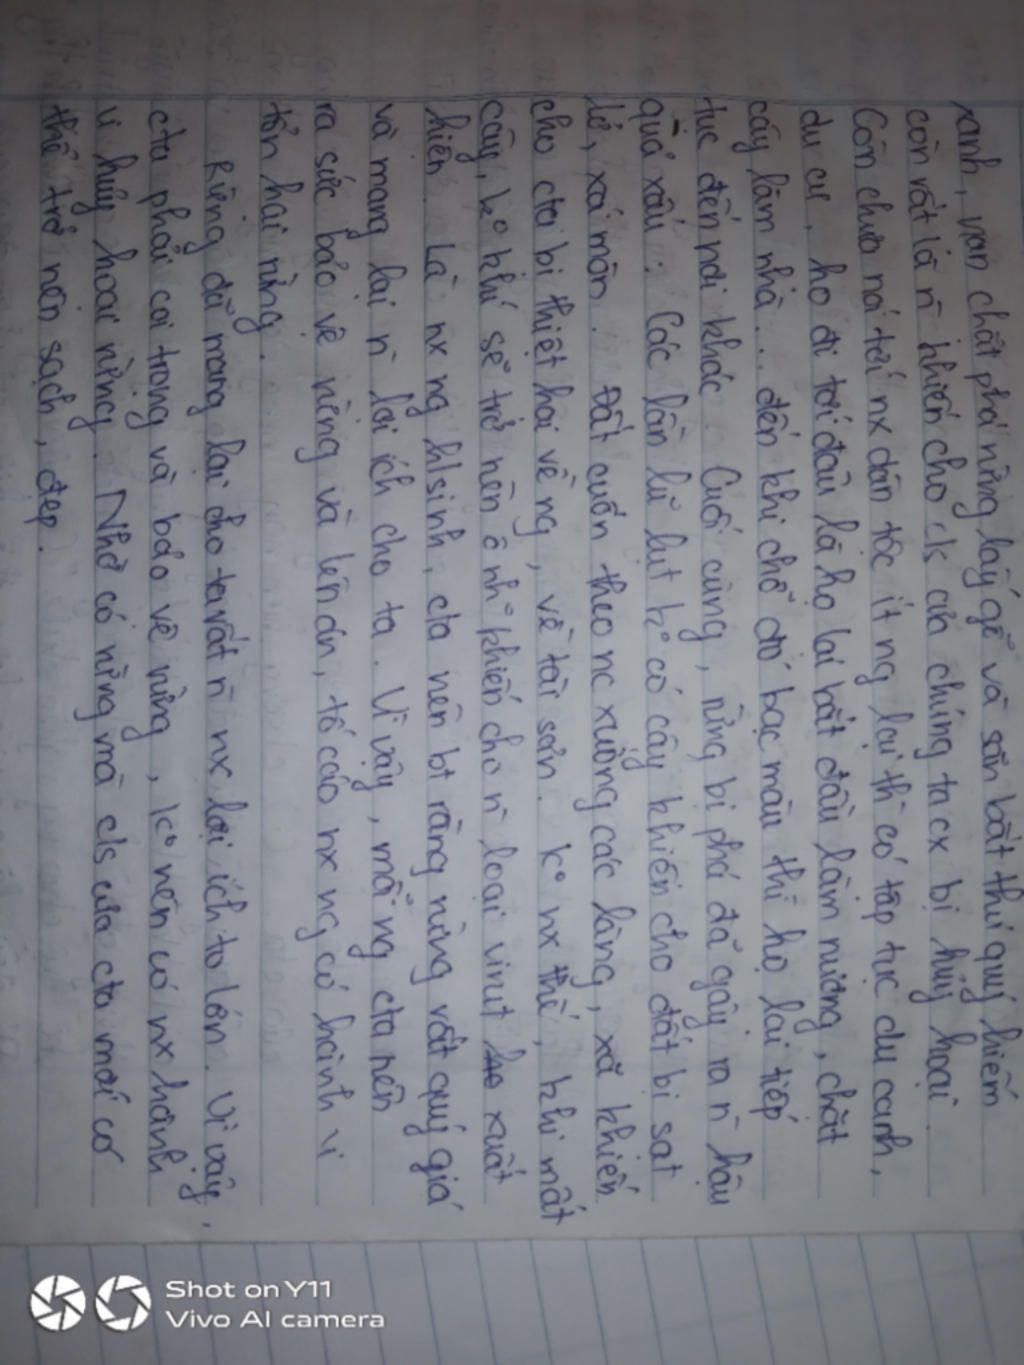 xanh, vạn chất phá rừng lấy gỗ và săn bắt thú quý hiếm
còn rất là n̄ khiến cho c/s của chúng ta cx bị huỷ hoại.
Còn chưa nói tới nx dân tộc ít ng lại thì có tập tục du canh,
du cư, họ đi tới đâu là họ lại bắt đầu làm nương, chặt
cây làm nhà... đến khi chỗ đó bạc màu thì họ lại tiếp
tục đến nơi khác. Cuối cùng, rừng bị phá đã gây ra n̄ hậu
quả xấu: Các lần lũ lụt k° có cây khiến cho đất bị sạt
lở, xói mòn. Đất cuốn theo nc xuống các làng, xã khiến
cho cta bị thiệt hại về ng, về tài sản. K° nx thế, khi mất
cây, k° khí sẽ trở nên ô nh° khiến cho n̄ loại virut xuất
hiện. Là nx ng h/sinh, cta nên bt rằng rừng rất quý giá
và mang lại n̄ lợi ích cho ta. Vì vậy, mỗi ng cta nên
ra sức bảo vệ rừng và lên án, tố cáo nx ng có hành vi
tổn hại rừng.
Rừng đã mang lại cho ta rất n̄ nx lợi ích to lớn. Vì vậy,
cta phải coi trọng và bảo vệ rừng, k° nên có nx hành
vi hủy hoại rừng. Nhờ có rừng mà c/s của cta mới có
thể trở nên sạch, đẹp.
Shot on Y11
Vivo AI camera